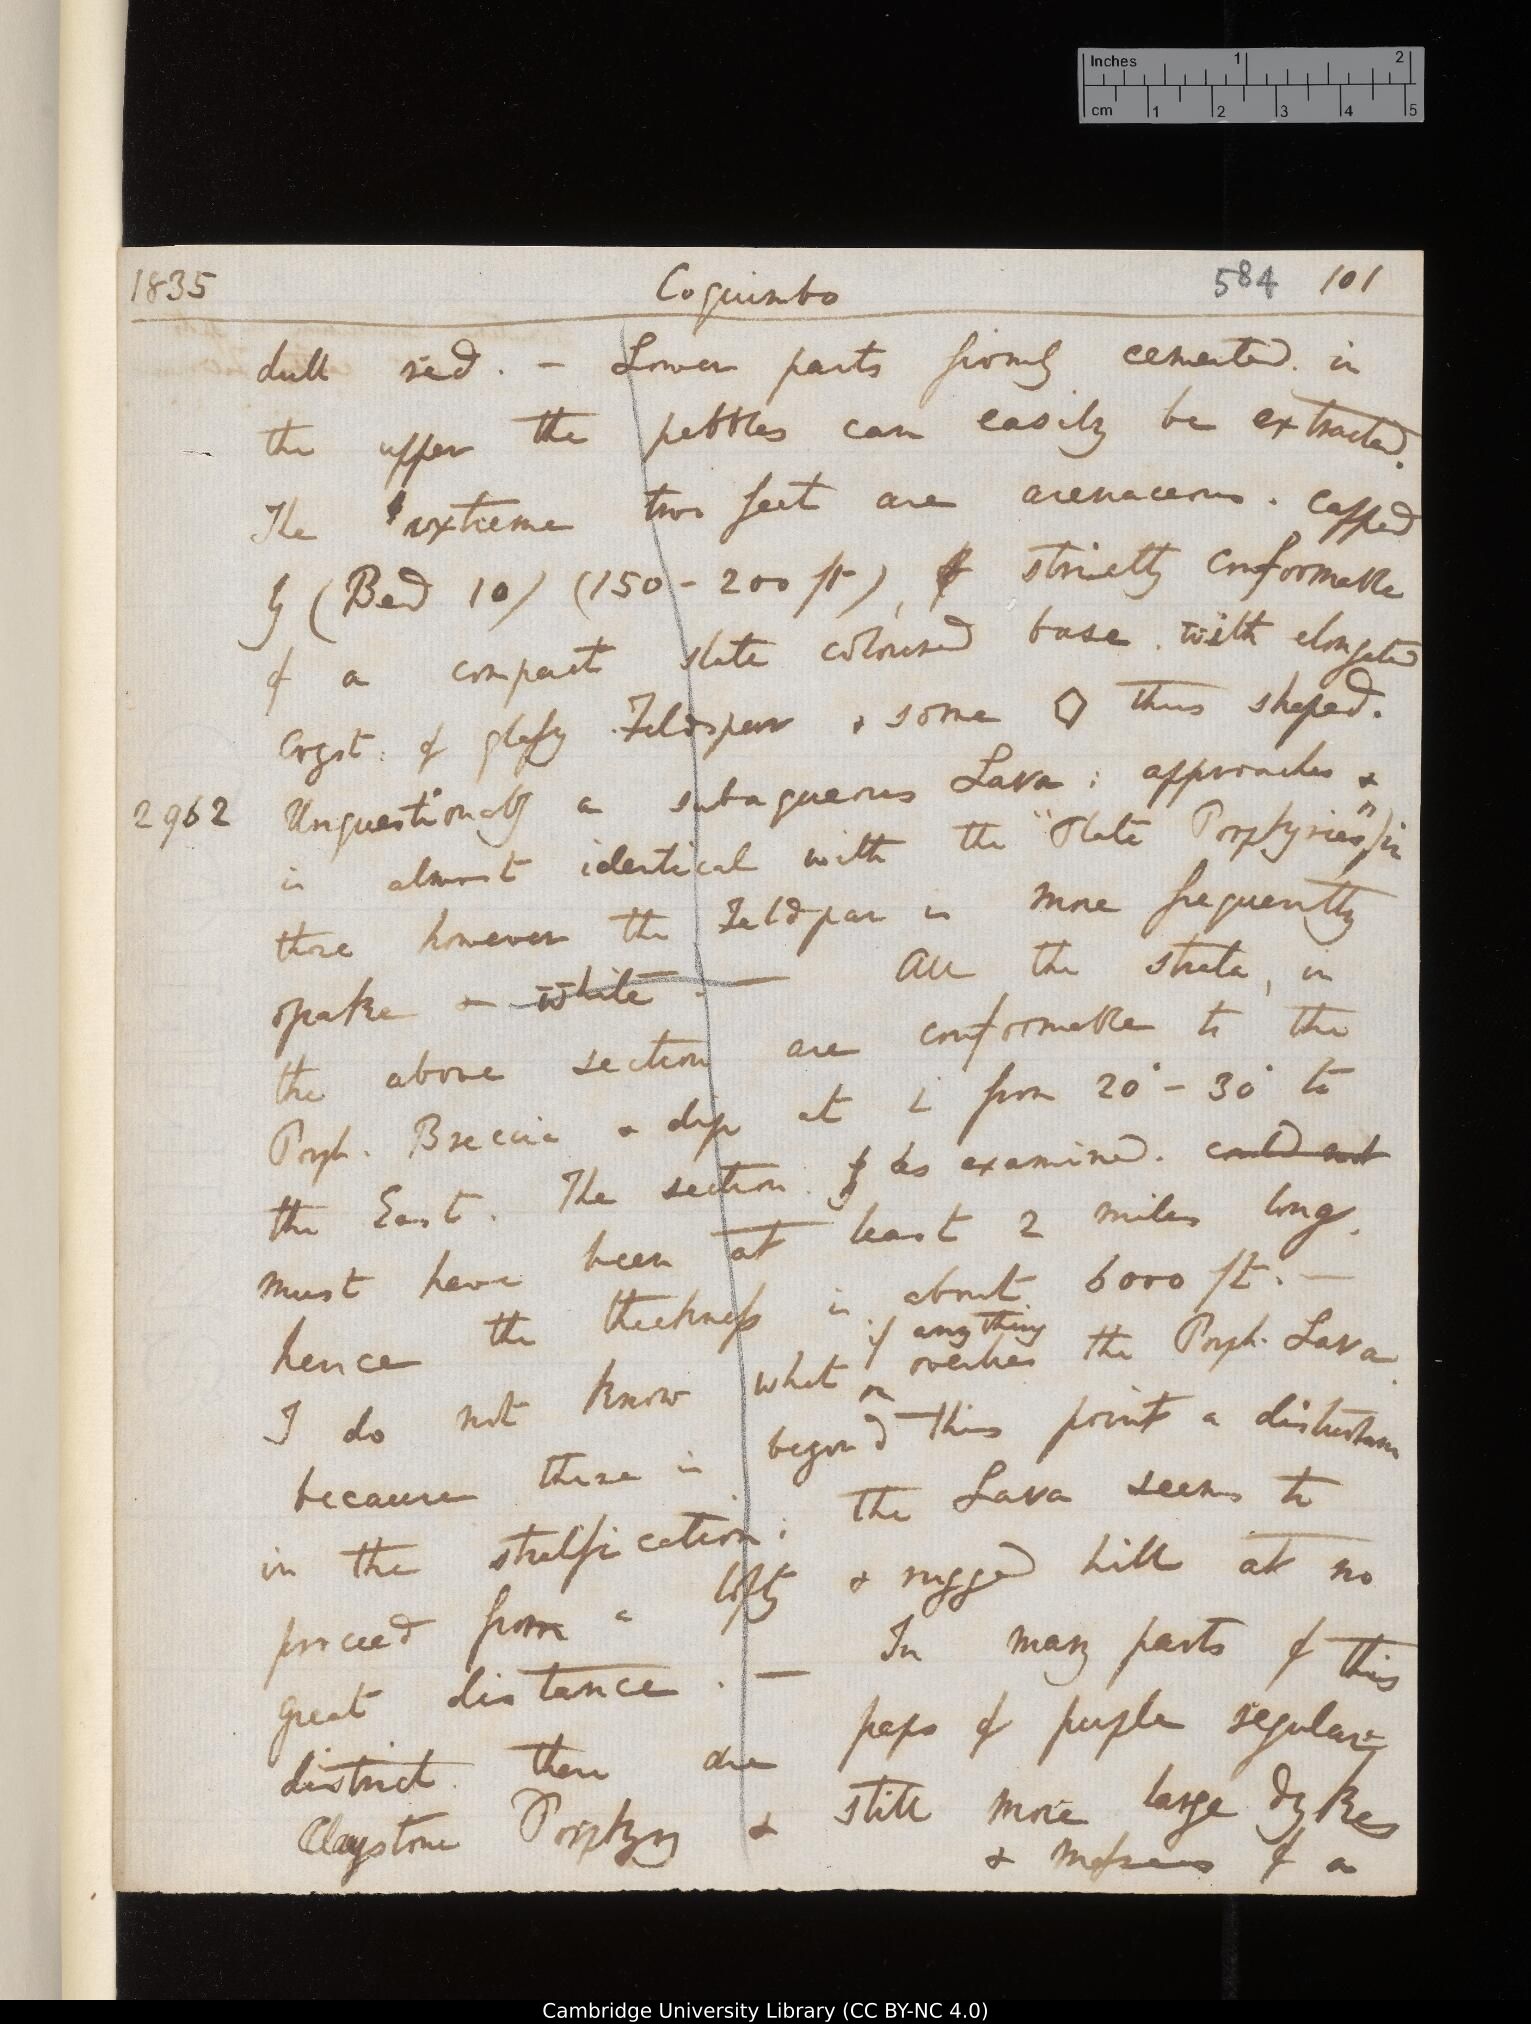 Inches 1 2
cm 1 2 3 4 5
1835 Coquimbo 584 101
dull red. — Lower parts firmly cemented. in
the upper the pebbles can easily be extracted.
The extreme two feet are arenaceous. capped
by (Bed 10) (150 - 200 ft), strictly conformable
of a compact slate coloured base. with elongated
cryst: of glassy Feldspar & some ⬠ thus shaped.
2962 Unquestionably a subaqueous Lava; approaches &
is almost identical with the "Slate Porphyries", in
those however the Feldspar is more frequently
opake & white. — All the strata, in
the above section are conformable to the
Porph. Breccia & dip at ∠ from 20° - 30° to
the East. The section. examined. could not
must have been at least 2 miles long.
hence the thickness is about 6000 ft. —
if anything
I do not know what overlies the Porph. Lava.
because there is beyond this point a disturbance
in the stratification; the Lava seems to
proceed from a lofty & rugged hill at no
great distance. — In many parts of this
district there are paps of purple regular
Claystone Porphyry & still more large dykes
& masses of a
Cambridge University Library (CC BY-NC 4.0)